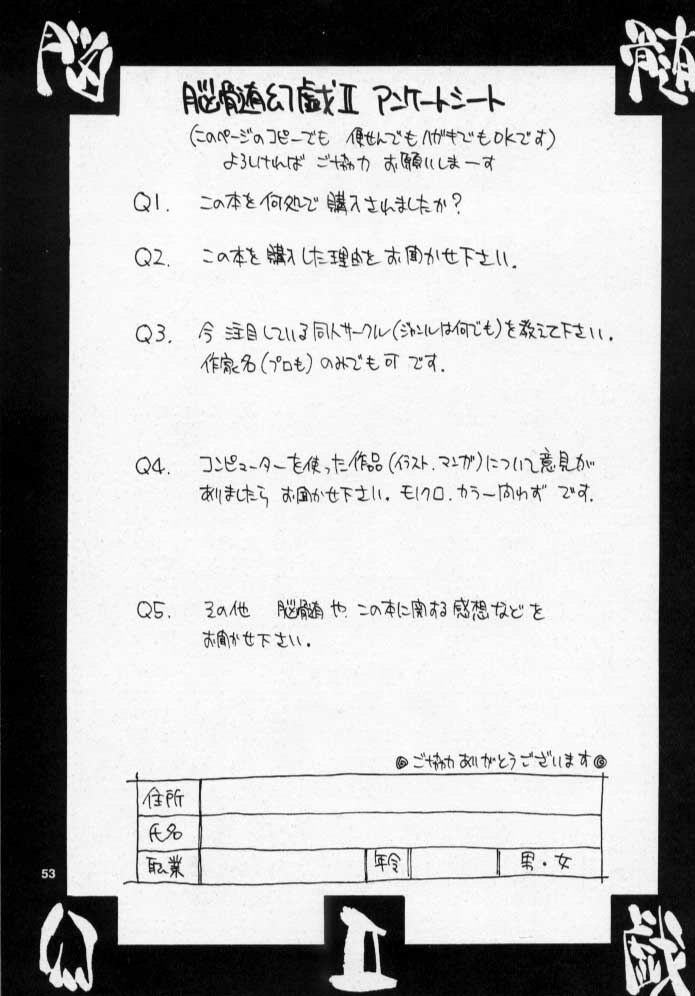 脳 髄
脳髄幻戯Ⅱ アンケートシート
(このページのコピーでも 便せんでもハガキでもOKです)
よろしければ ご協力 お願いしまーす
Q1. この本を何処で購入されましたか?
Q2. この本を購入した理由をお聞かせ下さい.
Q3. 今注目している同人サークル(ジャンルは何でも)を教えて下さい.
作家名(プロも)のみでも可です.
Q4. コンピューターを使った作品(イラスト.マンガ)について意見が
ありましたら お聞かせ下さい. モノクロ.カラー問わず です.
Q5. その他 脳髄や、この本に関する感想などを
お聞かせ下さい.
◎ご協力ありがとうございます◎
住所
氏名
職業 年令 男・女
53
幻 Ⅱ 戯